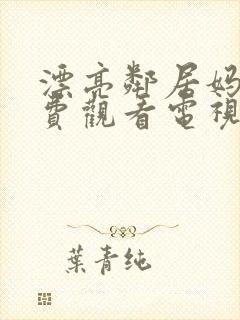 漂亮鄰居妈
費觀看電視
葉青纯